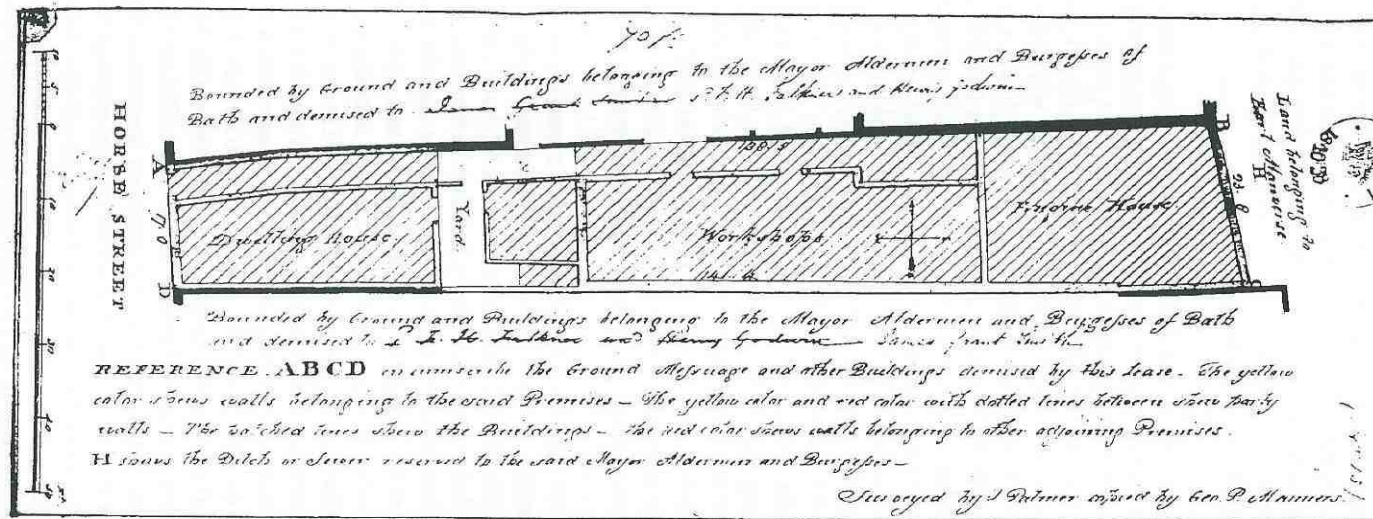 70
Bounded by Ground and Buildings belonging to the Mayor Aldermen and Burgeſses of
Bath and demised to James Grant Smith S. F. H. Falkner and Henry Godwin
HORSE STREET
A
B
D
138 9
Yard
Dwelling House
Workshops
House
17 0
Land belonging to
Earl Manverse
H
Bounded by Ground and Buildings belonging to the Mayor Aldermen and Burgeſses of Bath
and demised to F. H. Falkner and Henry Godwin James Grant Smith
REFERENCE. ABCD circumscribe the Ground Meſsuage and other Buildings demised by this Lease - The yellow
color shews walls belonging to the said Premises - The yellow color and red color with dotted lines between shew party
walls - The hatched lines shew the Buildings - the red color shews walls belonging to other adjoining Premises.
H shows the Ditch or Sewer reserved to the said Mayor Aldermen and Burgeſses -
Surveyed by J Palmer copied by Geo. P. Manners
10
20
30
40
50